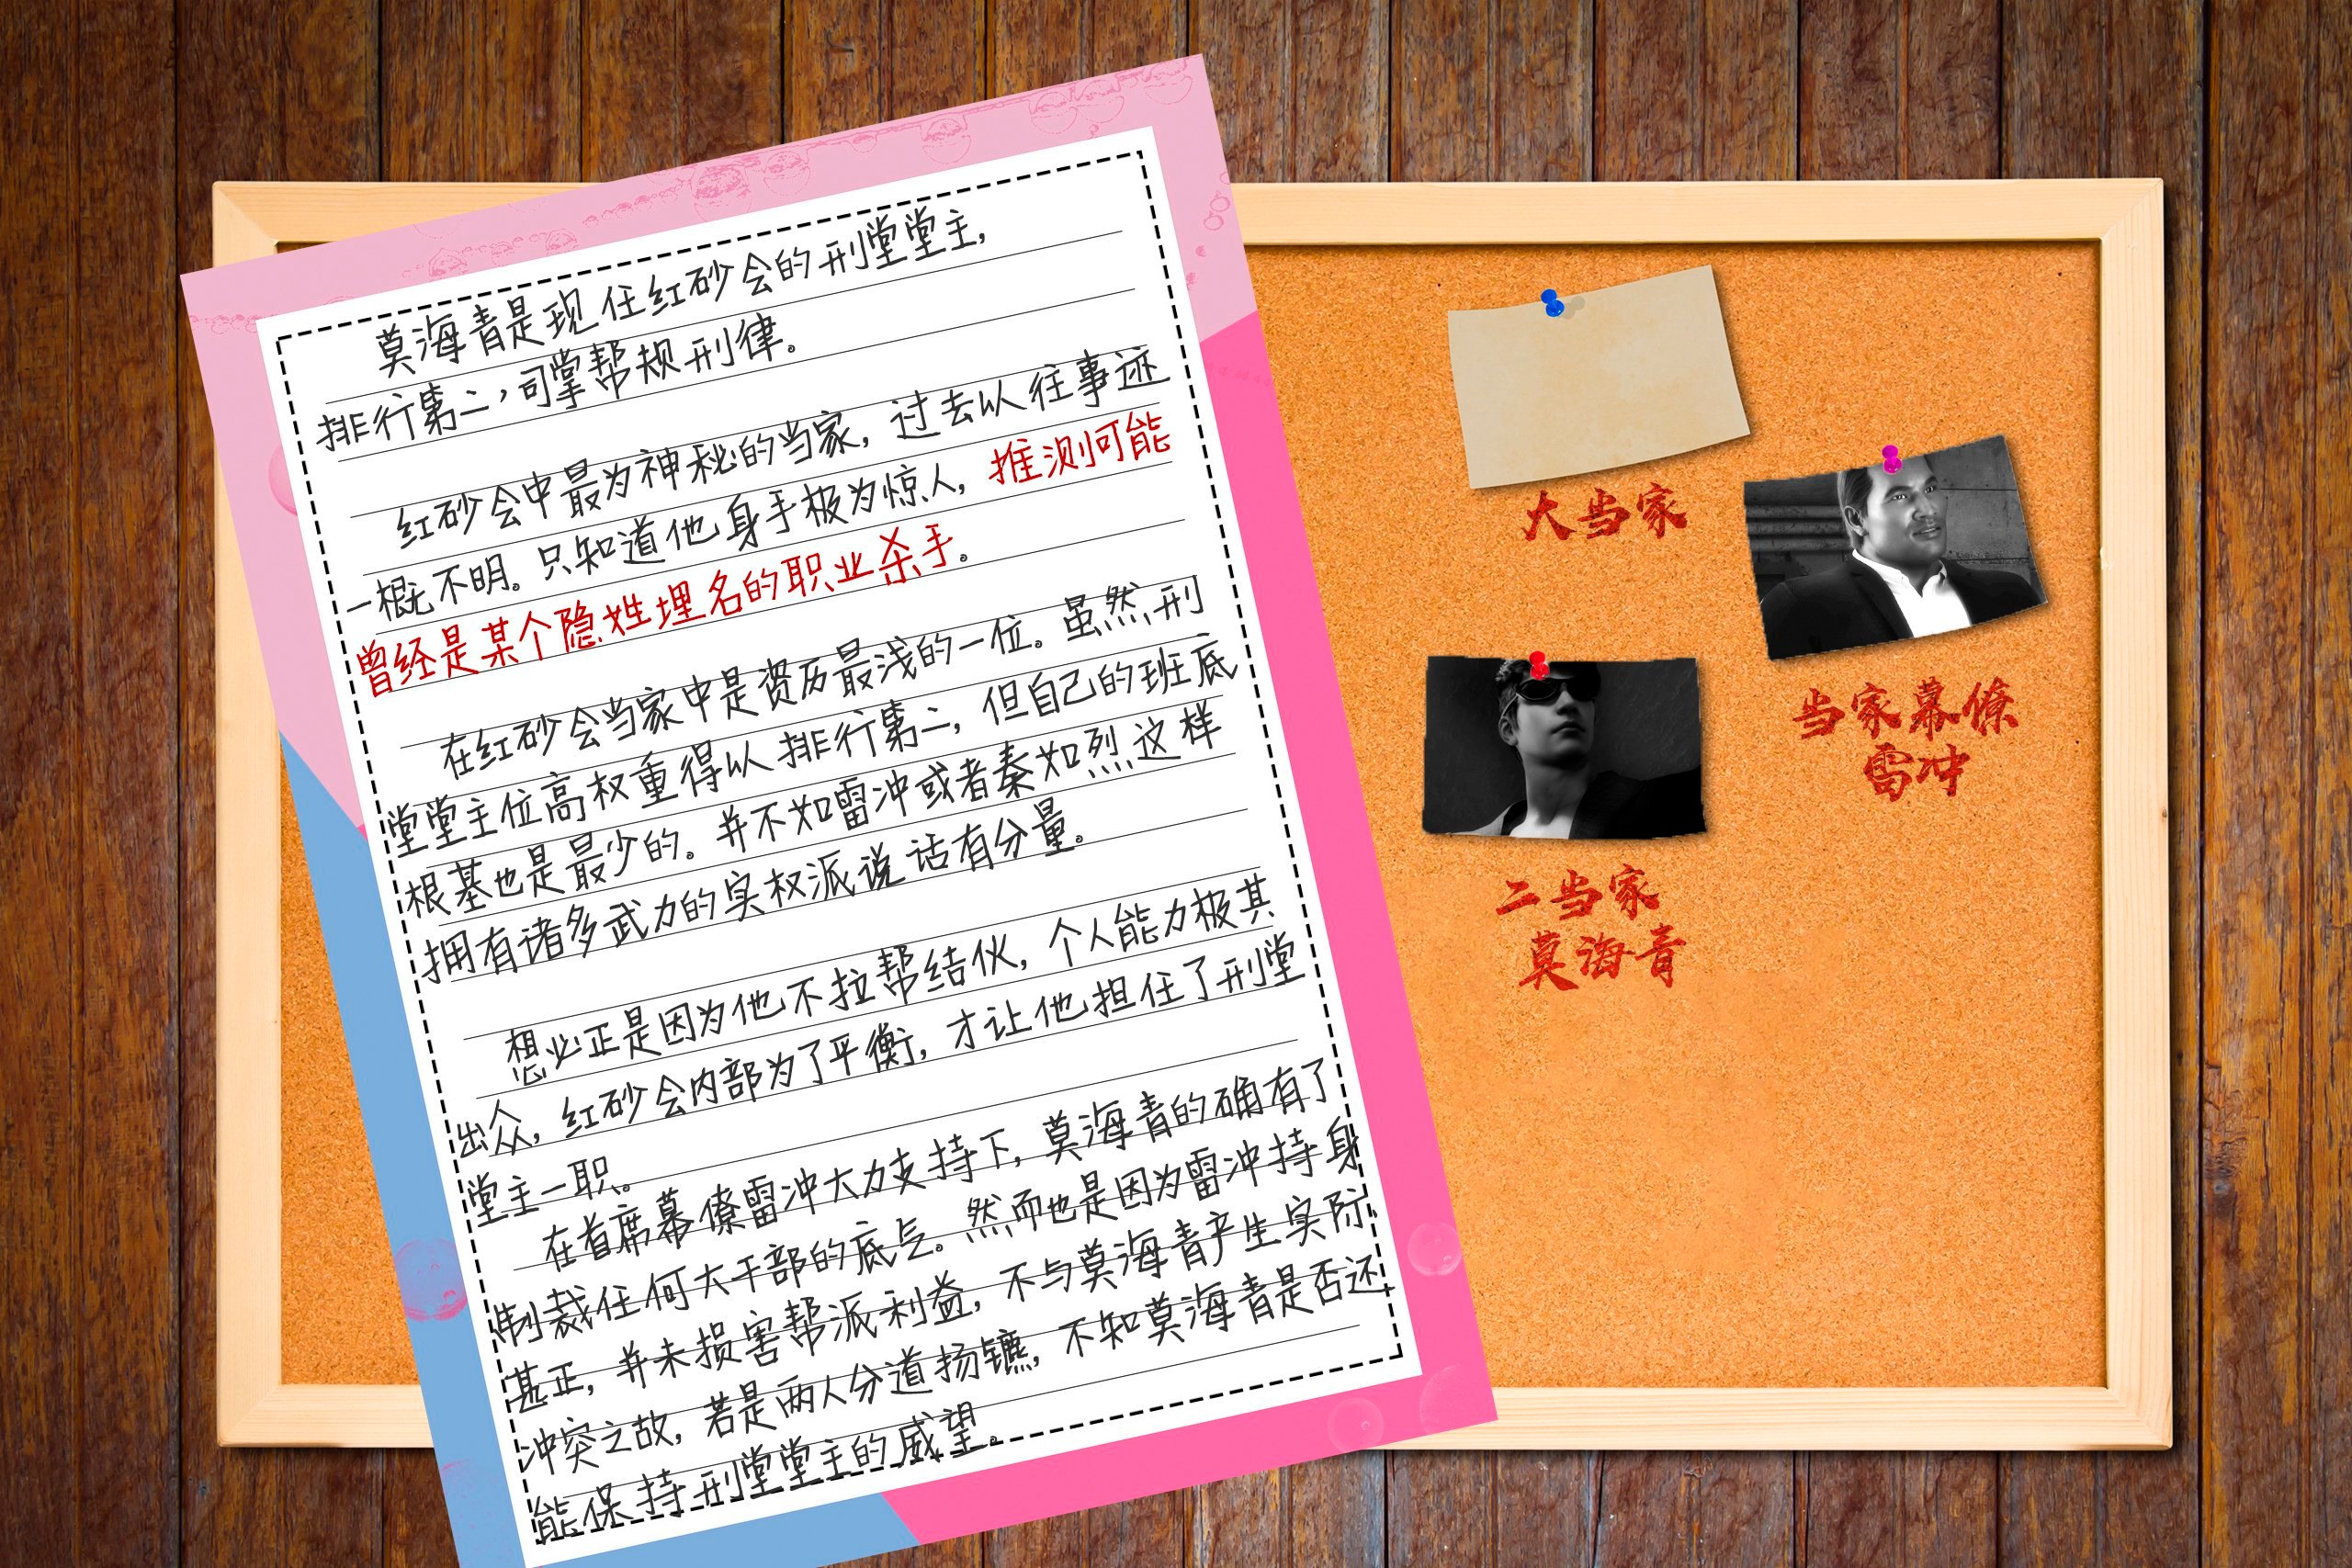 莫海青是现任红砂会的刑堂堂主,
排行第二,司掌帮规刑律。
红砂会中最为神秘的当家,过去以往事迹
一概不明。只知道他身手极为惊人,推测可能
曾经是某个隐姓埋名的职业杀手。
在红砂会当家中是资历最浅的一位。虽然刑
堂堂主位高权重得以排行第二,但自己的班底
根基也是最少的。并不如雷冲或者秦如烈这样
拥有诸多武力的实权派说话有分量。
想必正是因为他不拉帮结伙,个人能力极其
出众,红砂会内部为了平衡,才让他担任了刑堂
堂主一职。
在首席幕僚雷冲大力支持下,莫海青的确有了
制裁任何大干部的底气。然而也是因为雷冲持身
甚正,并未损害帮派利益,不与莫海青产生实际
冲突之故,若是两人分道扬镳,不知莫海青是否还
能保持刑堂堂主的威望。
大当家
当家幕僚
雷冲
二当家
莫海青